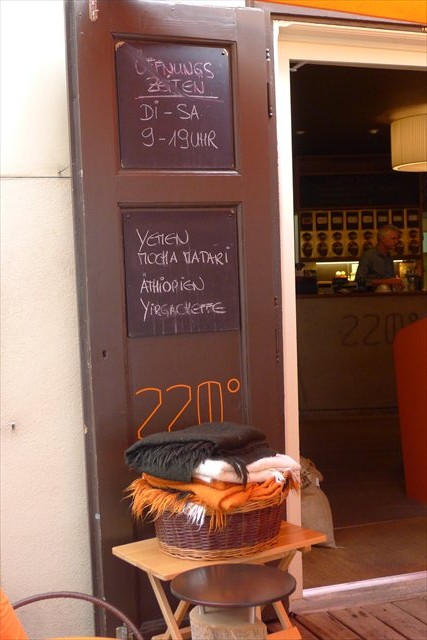 ÖFFNUNGS
ZEITEN
DI - SA
9 - 19 UHR
YEMEN
MOCHA MATARI
ÄTHIOPIEN
YIRGACHEFFE
220°
220°